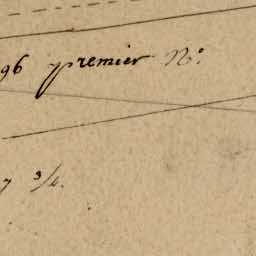 96 premier N°.
7 3/4.